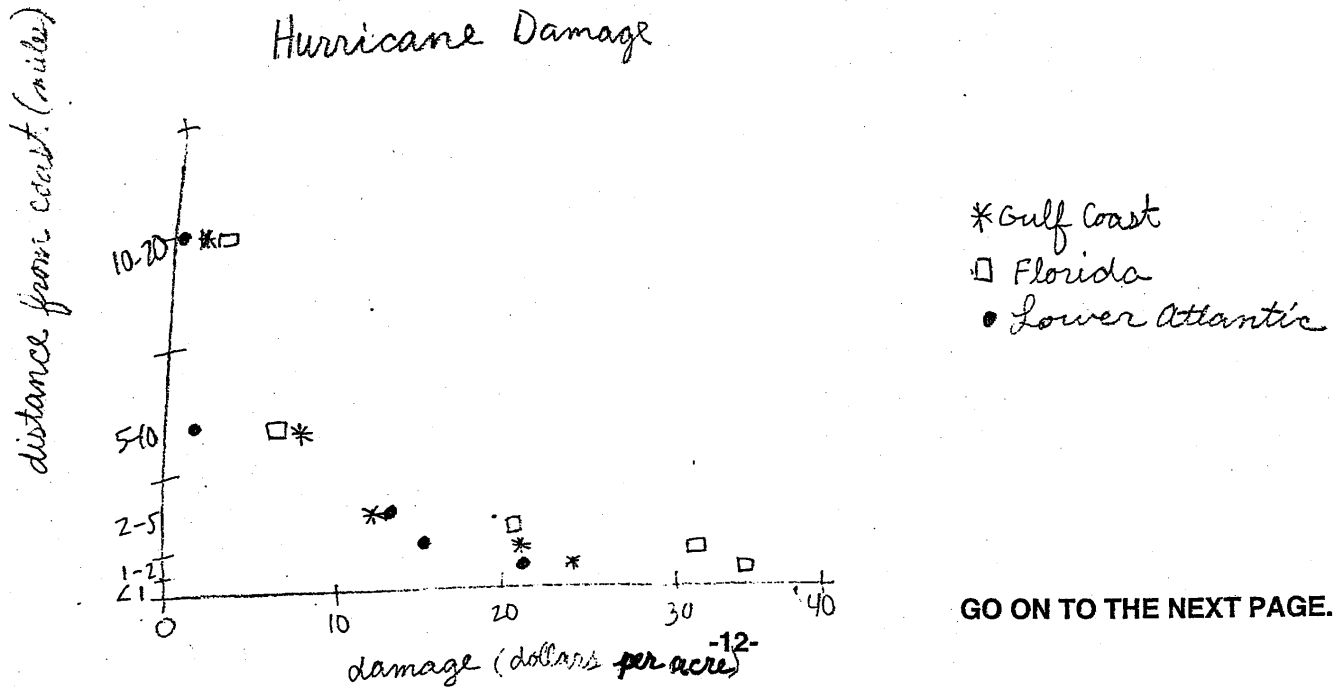 Hurricane Damage
distance from coast (miles)
10-20
5-10
2-5
1-2
<1
0
10
20
30
40
damage (dollars per acre)
-12-
* Gulf Coast
□ Florida
• Lower Atlantic
GO ON TO THE NEXT PAGE.